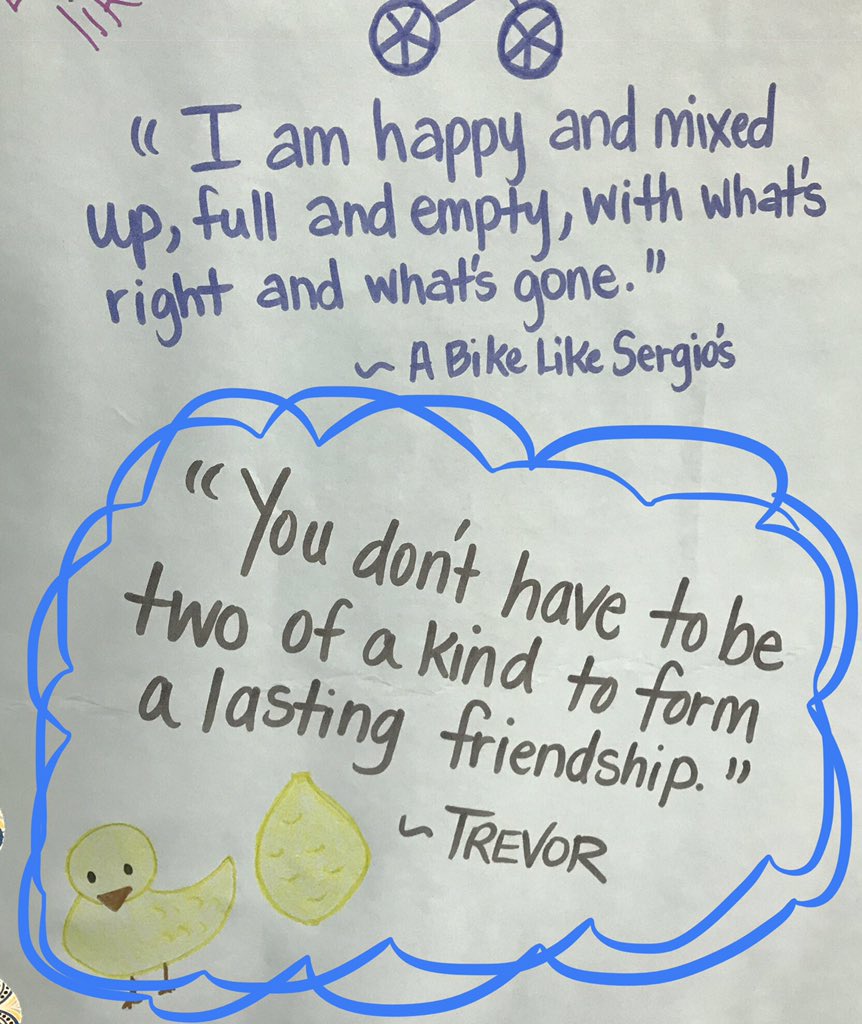 “I am happy and mixed
up, full and empty, with what's
right and what's gone.”
~ A Bike Like Sergio's
“You don't have to be
two of a kind to form
a lasting friendship.”
~ TREVOR